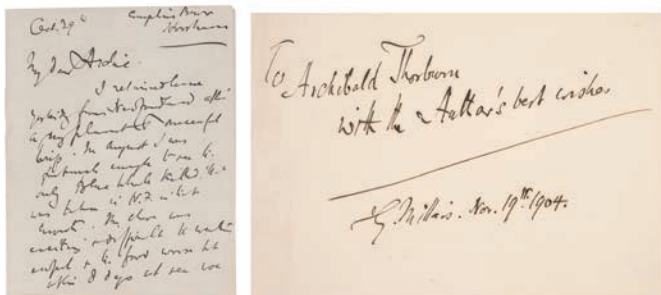 Oct. 29th
Compton's Brow
Horsham
My dear Archie.
I returned home
yesterday from Newfoundland after
a very pleasant & successful
trip. In August I was
fortunate enough to see the
only Blue Whale killed. that
was taken in N.F. in last
month. The chase was
exciting & difficult to
& the food worse but
after 8 days at sea we
To Archibald Thorburn
with the Author's best wishes
J.G. Millais. Nov. 19th. 1904.